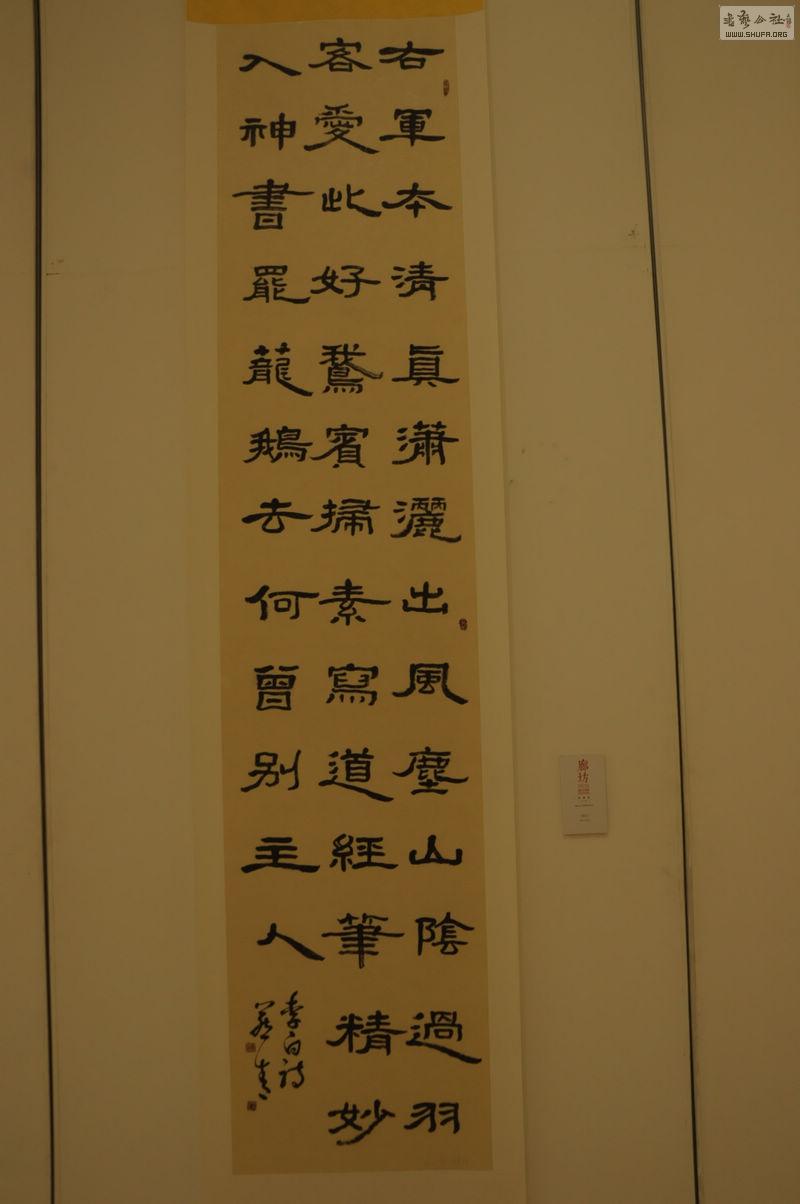 右軍本清眞瀟灑出風塵山陰過羽
客愛此好鵞賓掃素寫道經筆精妙
入神書罷蘢鵝去何曾別主人
李白詩
廊坊
书艺公社
WWW.SHUFA.ORG